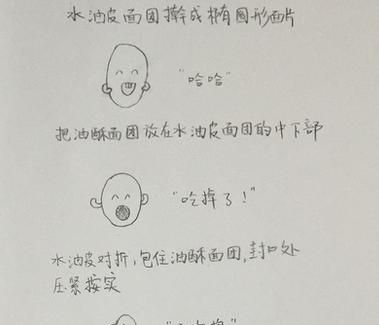 水油皮面团擀成椭圆形面片
"哈哈"
把油酥面团放在水油皮面团的中下部
"吃掉了!"
水油皮对折,包住油酥面团,封口处
压紧按实